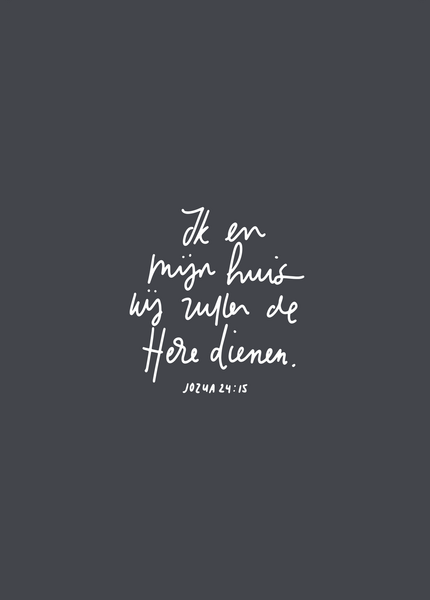 Ik en
mijn huis
wij zullen de
Here dienen.
JOZUA 24:15